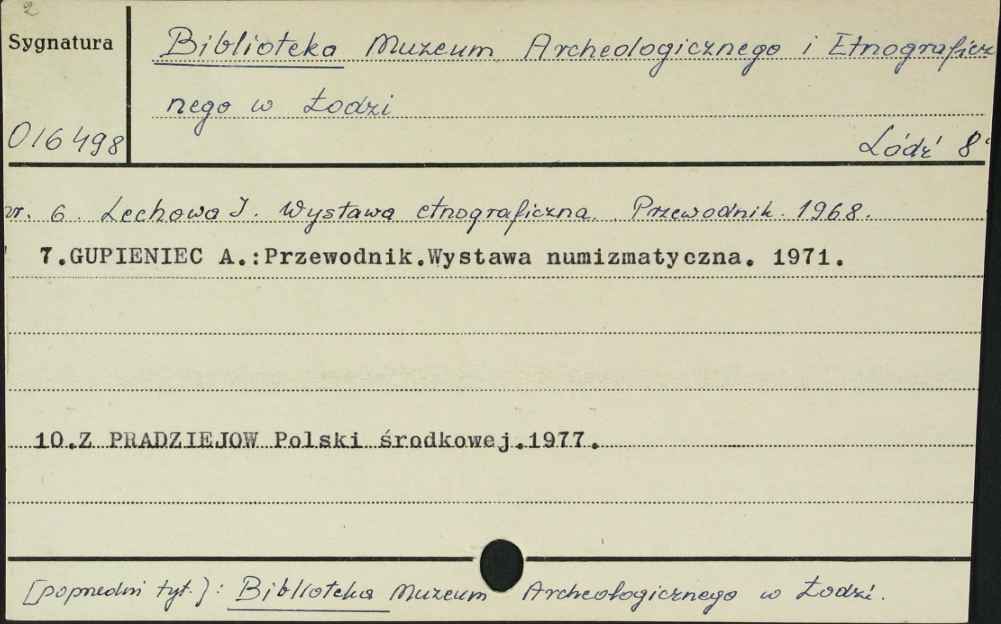 2
Sygnatura
Biblioteka Muzeum Archeologicznego i Etnograficz
nego w Łodzi
016498
Łódź 8°
nr. 6. Lechowa I. Wystawa etnograficzna. Przewodnik. 1968.
7.GUPIENIEC A.:Przewodnik.Wystawa numizmatyczna. 1971.
10.Z PRADZIEJOW Polski środkowej.1977.
[poprzedni tyt.]: Biblioteka Muzeum Archeologicznego w Łodzi.